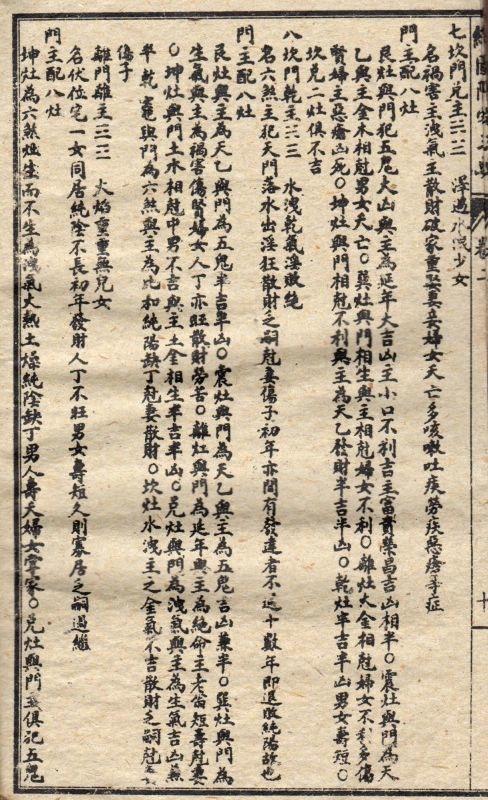 七坎門兌主☵☱ 澤遇水限少女
名禍害主洩氣主散財破家重娶妻妾婦女夭亡多咳嗽吐痰勞疾惡瘡等症
門主配八灶
艮灶與門犯五鬼大凶與主為延年大吉凶主小口不利吉主富貴榮昌吉凶相半○震灶與門為天
乙與主金木相尅男女夭亡○巽灶與門相生與主相尅婦女不利○離灶火金相尅婦女不利多傷
賢婦主惡瘡凶死○坤灶與門相尅不利與主為天乙發財半吉半凶○乾灶半吉半凶男女壽短○
坎兌二灶俱不吉
八坎門乾主☵☰ 水洩乾氣淫敗絕
名六煞主犯天門落水出淫狂散財乏嗣尅妻傷子初年亦間有發達者不過十數年即退敗純陽故也
門主配八灶
艮灶與主為天乙與門為五鬼半吉半凶○震灶與門為天乙與主為五鬼吉凶兼半○巽灶與門為
生氣與主為禍害傷賢婦女人丁亦旺散財勞苦○離灶與門為延年與主為絕命主老翁短壽尅妻
○坤灶與門土水相尅中男不吉與主土金相生半吉半凶○兌灶與門為洩氣與主為生氣吉凶兼
半乾竈與門為六煞與主為比和純陽缺丁尅妻散財○坎灶水洩主之金氣不吉散財乏嗣尅妻
傷子
離門離主☲☲ 火焰重重無兒女
名伏位宅一女同居純陰不長初年發財人丁不旺男女壽短久則寡居乏嗣過繼
門主配八灶
坤灶為六煞灶生而不生為洩氣火熱土燥純陰缺丁男人壽夭婦女掌家○兌灶與門主俱犯五鬼
卷二
十